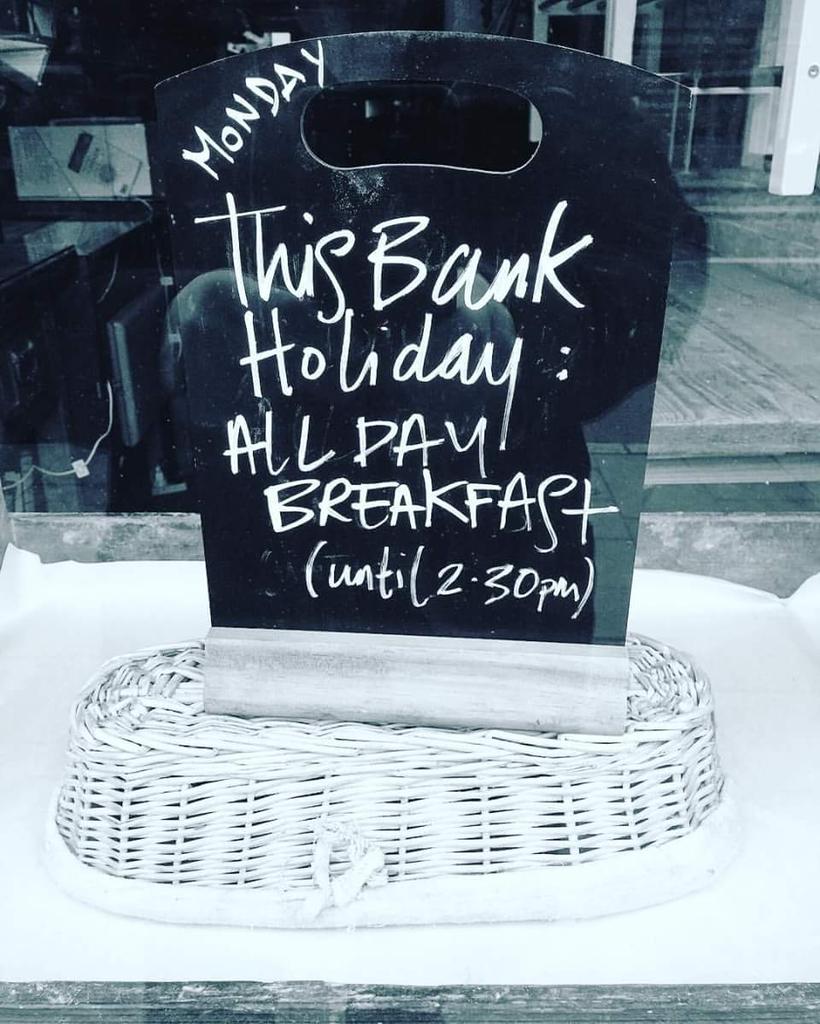 MONDAY
This Bank
Holiday:
ALL DAY
BREAKFAST
(until 2.30pm)